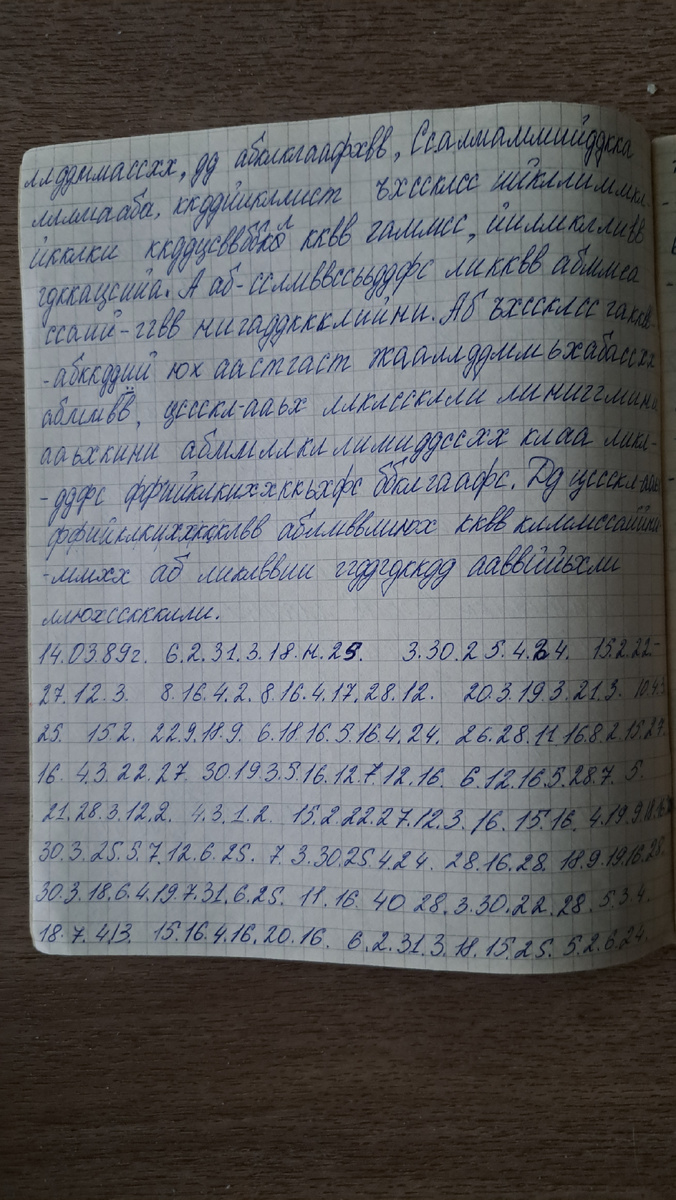 ллддммассхх, дд абклклгаафхвв, Ссалмаммийддкка
лллмааба, ккддйикллист ъхссклсс ийкллиммкл
йкклки ккддцсввббкл кквв гаммсс, йилмклливв
гдккацсийа. А аб-сслмввссььддфс ликквв аблмса
ссаий-ггвв нигаддккклийни. Аб ъхссклсс гаккв
-абккддий юх аастгаст жааллддммьхабассхх
аблмвв, цссскл-ааьх ллклссклли линиггмини
ааьхкини абммллкл лимиддссхх клаа ликл-
-ддфс ффийклкихxккьхфс ббклгаафс. Дд цссскл-ааьх
ффийклкихxккклвв аблмввлиюх кквв клммссаийни-
-ммхх аб ликлввии ггддгдккдд ааввййьхли
ллюхссккклли.
14.03.89г. 6.2.31.3.18.н.25. 3.30.2 5.4.24. 15.2.22.-
27.12.3. 8.16.4.2.8.16.4.17.28.12. 20.3.19.3.21.3. 10.4.3
25. 15.2. 22.9.18.9. 6.18.16.5.16.4.24. 26.28.11.16.8.2.15.27.
16. 4.3.22.27. 30.19.3.5.16.12.7.12.16. 6.12.16.5.28.7. 5.
21.28.3.12.2. 4.3.1.2. 15.2.22.27.12.3.16.15.16. 4.19.9.11.16.
30.3.25.5.7.12.6.25. 7.3.30.25.4.24. 28.16.28. 18.9.19.16.25.
30.3.18.6.4.19.7.31.6.25. 11.16. 40 28.3.30.22.28. 5.3.4.
18.7.4.13. 15.16.4.16.20.16. 6.2.31.3.18.15.25. 5.2.6.24.